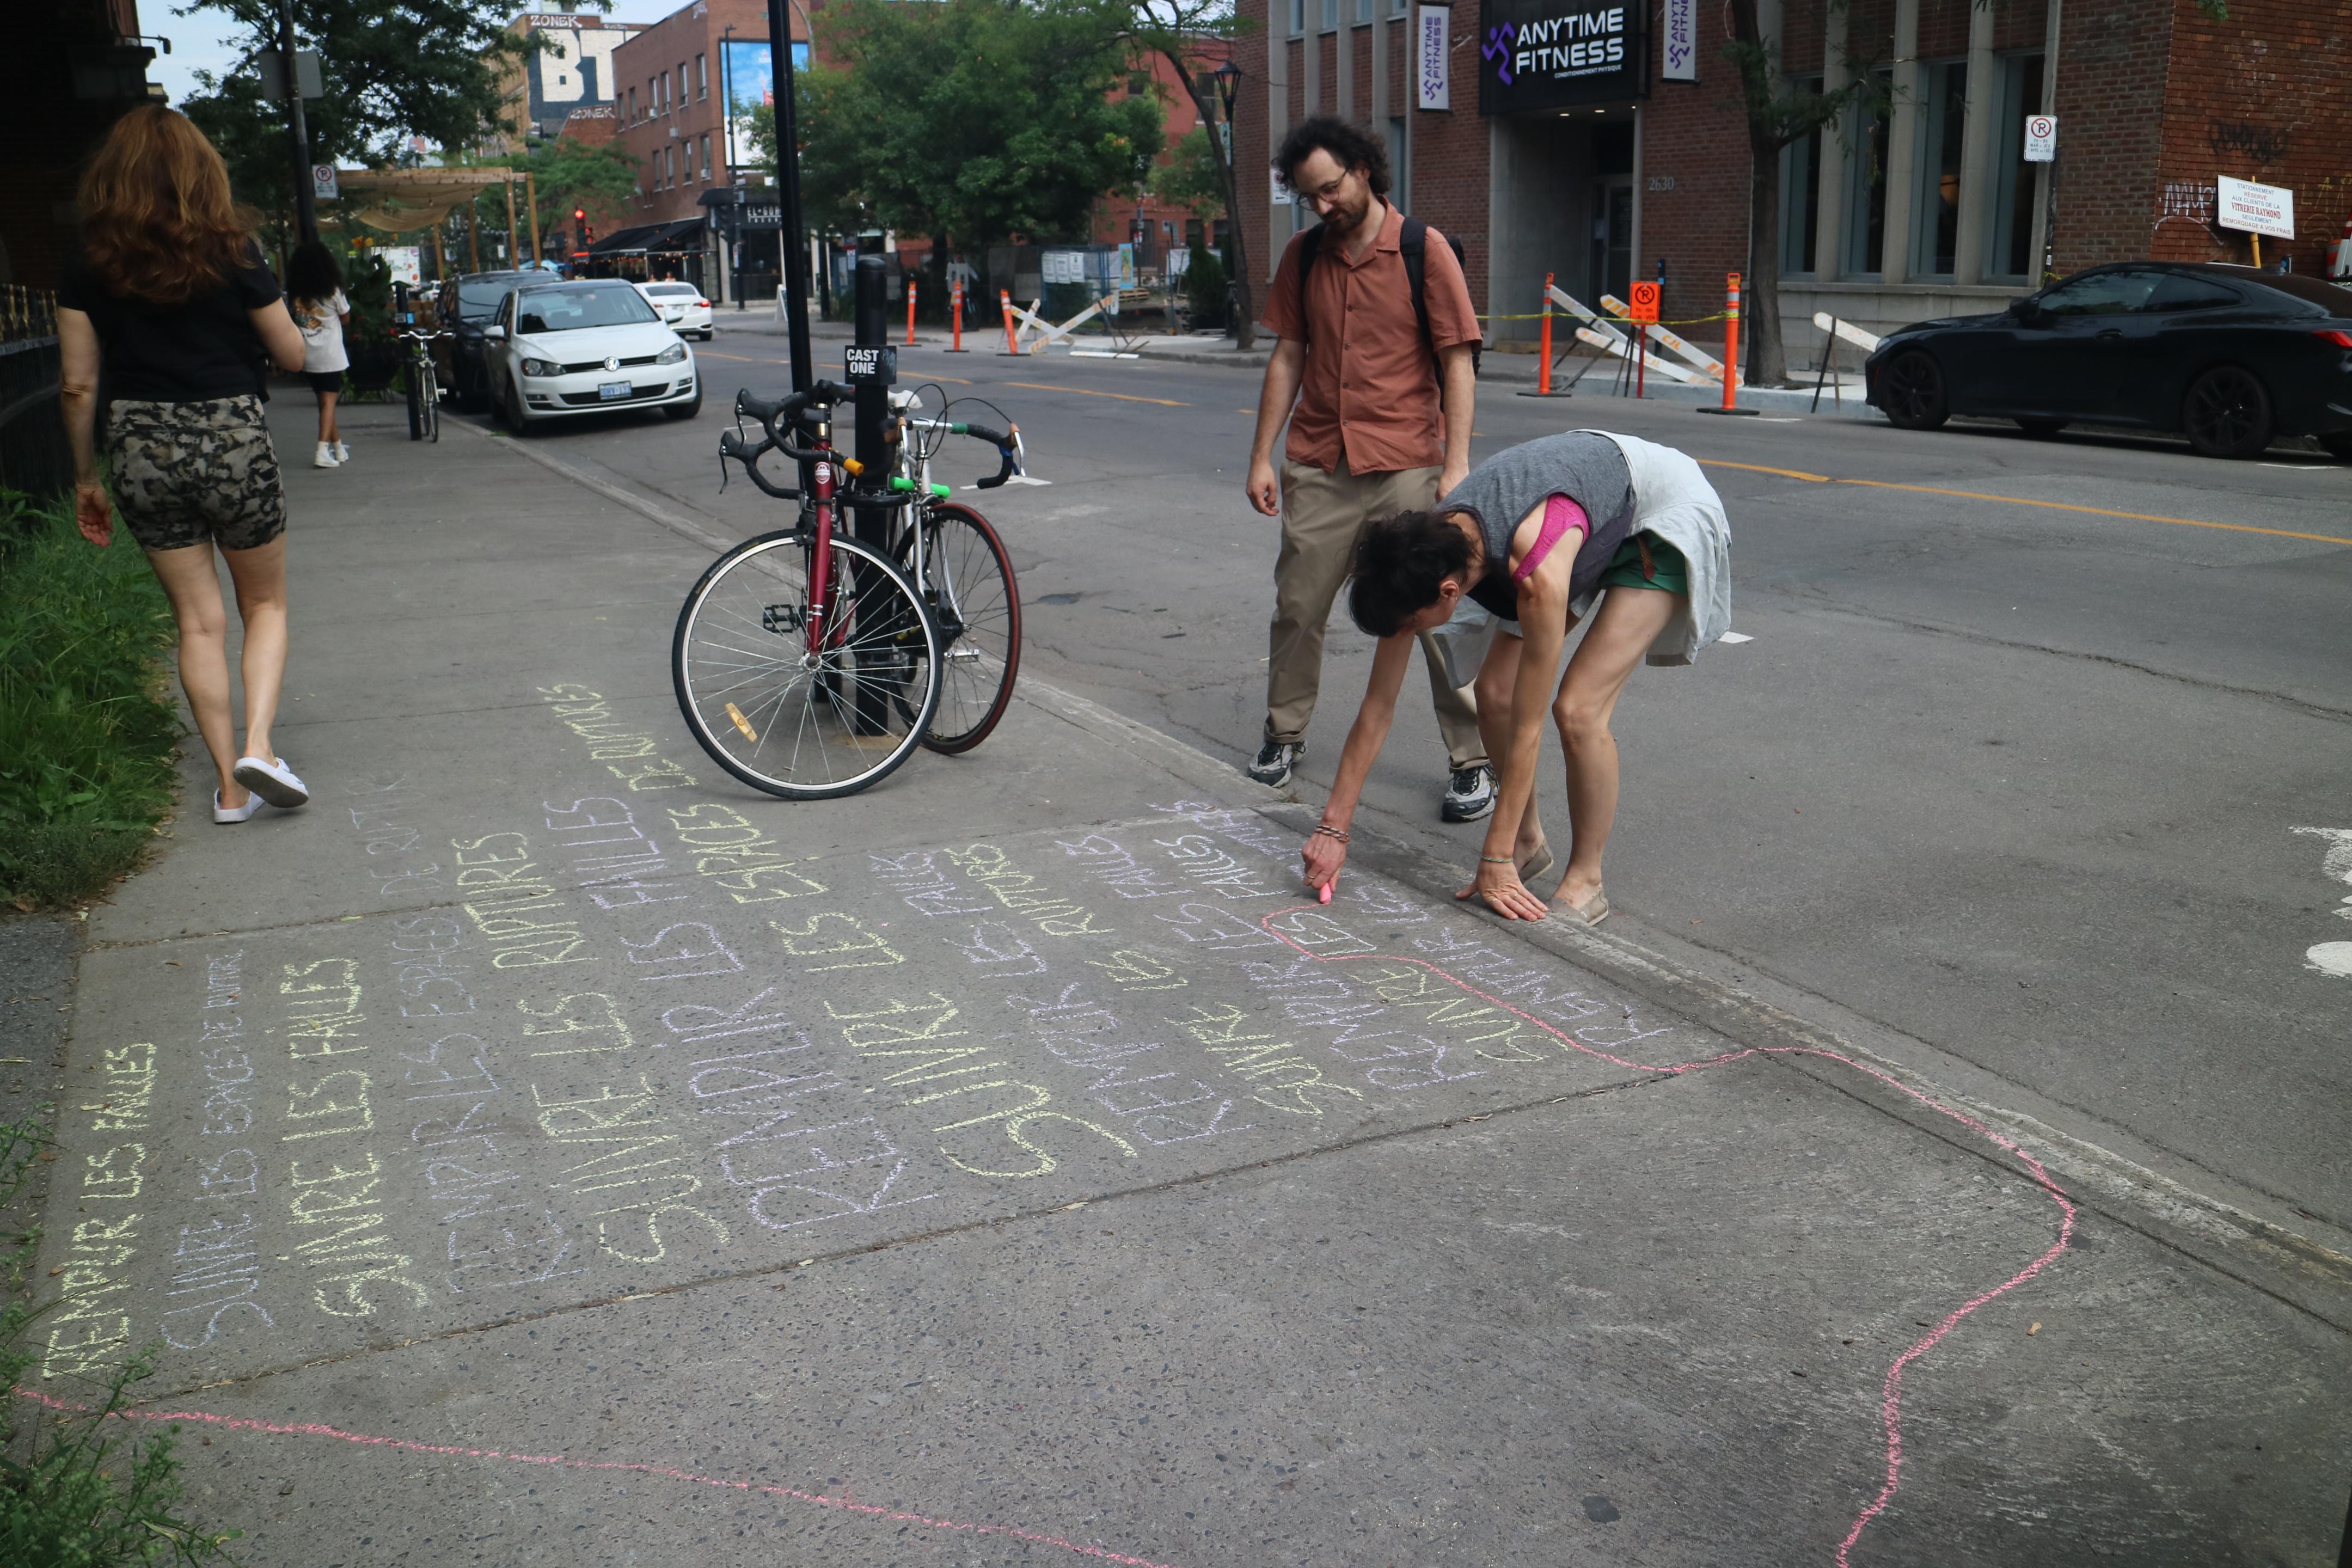 ZONEK
BT
ZONEK
ANYTIME
FITNESS
ANYTIME
FITNESS
CONDITIONNEMENT PHYSIQUE
ANYTIME
FITNESS
2630
STATIONNEMENT
RÉSERVÉ
AUX CLIENTS DE LA
VITRERIE RAYMOND
SEULEMENT
REMORQUAGE À VOS FRAIS
CAST
ONE
REMPLIR LES FAILLES
SUIVRE LES ESPACES DE RUPTURE
SUIVRE LES FAILLES
REMPLIR LES ESPACES DE RUPTURE
SUIVRE LES RUPTURES
REMPLIR LES FAILLES
SUIVRE LES ESPACES DE RUPTURES
REMPLIR LES FAILLES
SUIVRE LES RUPTURES
REMPLIR LES FAILLES
SUIVRE LES FAILLES
REMPLIR